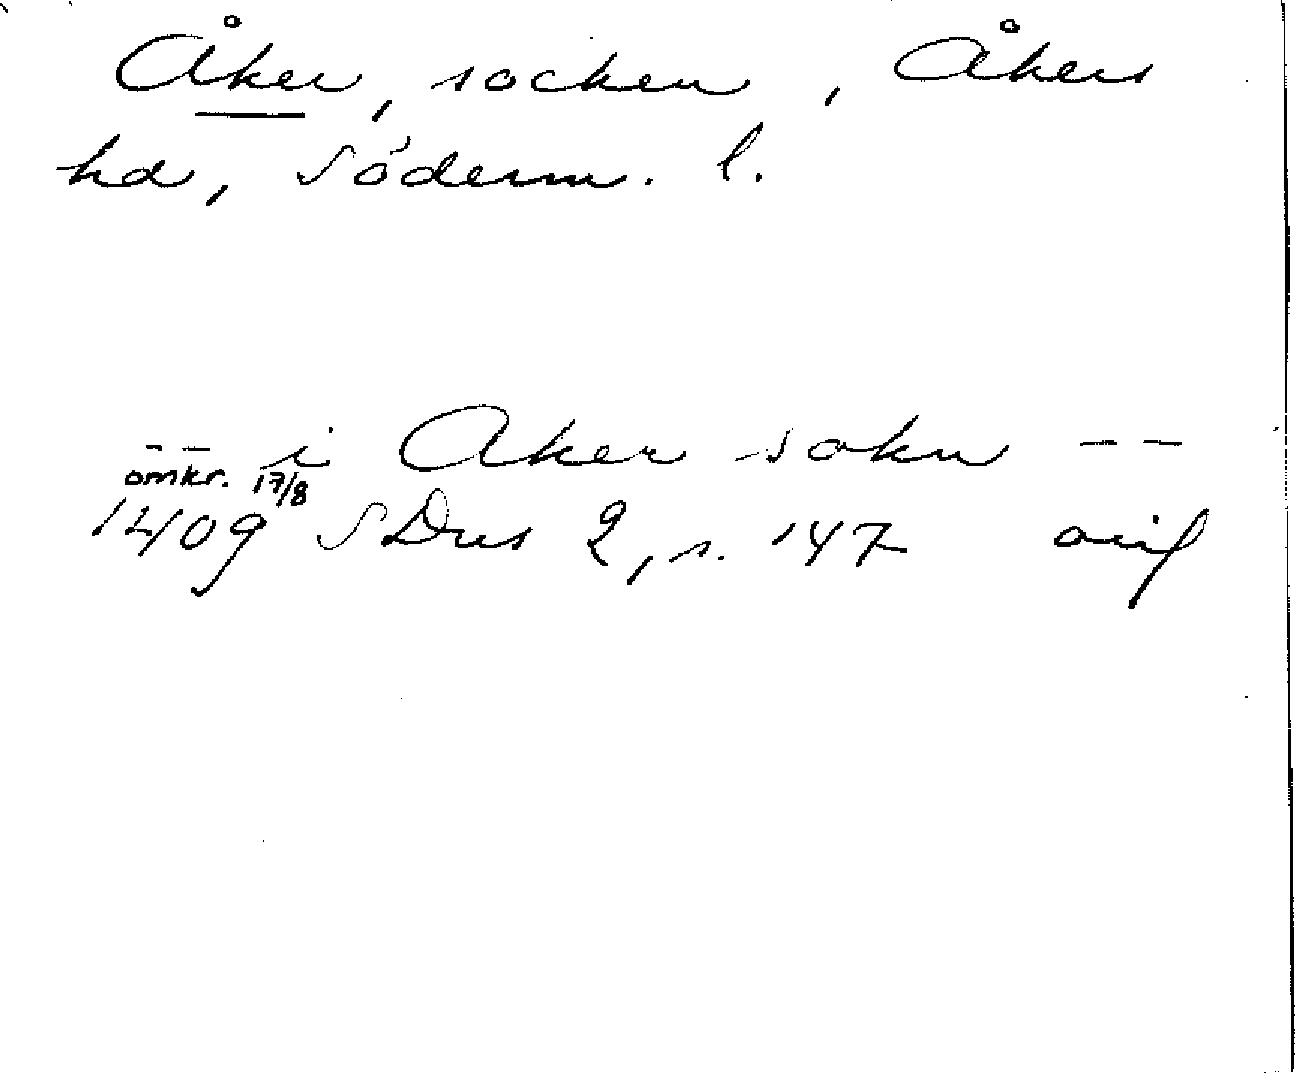 Åker, socken, Åkers
hd, Söderm. l.
-- i Aker sokn --
omkr. 17/8
1409 SDns 2, s. 147 avif